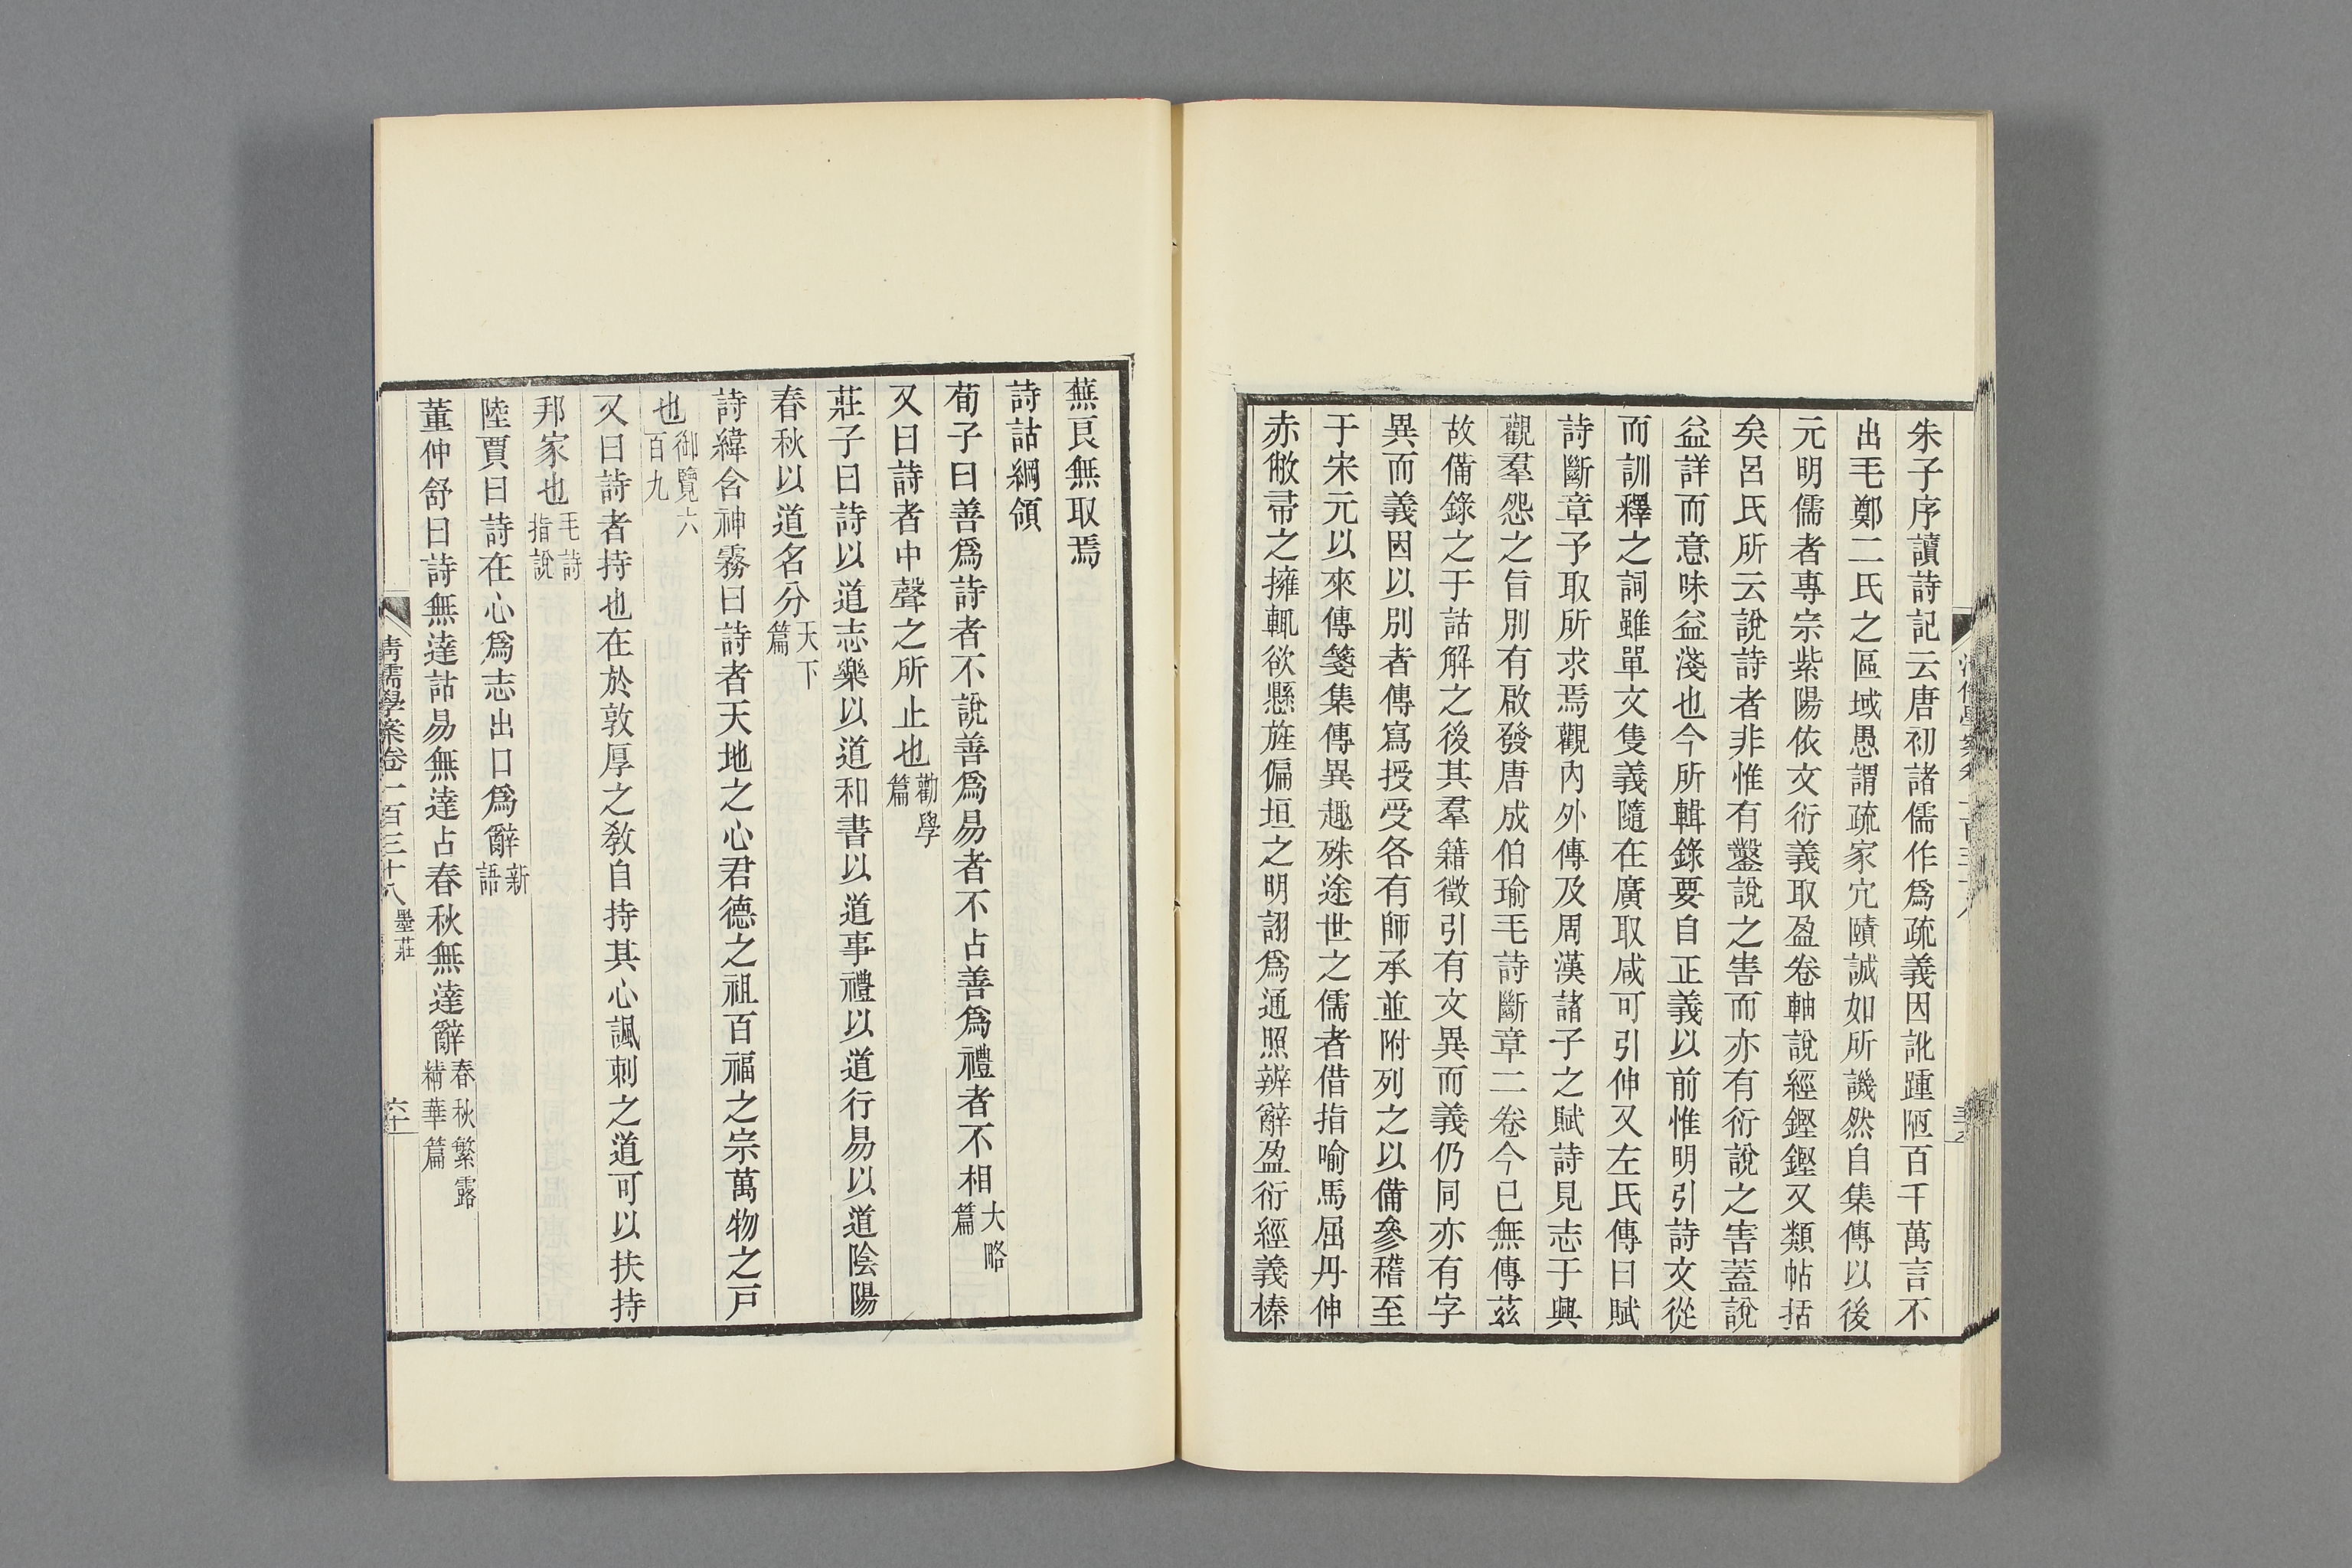 朱子序讀詩記云唐初諸儒作爲疏義因訛踵陋百千萬言不
出毛鄭二氏之區域愚謂疏家宂賾誠如所譏然自集傳以後
元明儒者專宗紫陽依文衍義取盈卷軸說經鏗鏗又類帖括
矣呂氏所云說詩者非惟有鑿說之害而亦有衍說之害蓋說
益詳而意味益淺也今所輯錄要自正義以前惟明引詩文從
而訓釋之詞雖單文隻義隨在廣取咸可引伸又左氏傳曰賦
詩斷章予取所求焉觀內外傳及周漢諸子之賦詩見志于興
觀羣怨之旨別有啟發唐成伯瑜毛詩斷章二卷今已無傳茲
故備錄之于詁解之後其羣籍徵引有文異而義仍同亦有字
異而義因以別者傳寫授受各有師承並附列之以備參稽至
于宋元以來傳箋集傳異趣殊途世之儒者借指喻馬屈丹伸
赤敝帚之擁輒欲懸旌偏垣之明詡爲通照辨辭盈衍經義榛
蕪艮無取焉
詩詁綱領
荀子曰善爲詩者不說善爲易者不占善爲禮者不相大略篇
又曰詩者中聲之所止也勸學篇
莊子曰詩以道志樂以道和書以道事禮以道行易以道陰陽
春秋以道名分天下篇
詩緯含神霧曰詩者天地之心君德之祖百福之宗萬物之戸
也御覽六百九
又曰詩者持也在於敦厚之敎自持其心諷刺之道可以扶持
邦家也毛詩指說
陸賈曰詩在心爲志出口爲辭新語
董仲舒曰詩無達詁易無達占春秋無達辭春秋繁露精華篇
清儒學案卷一百三十八 墨莊